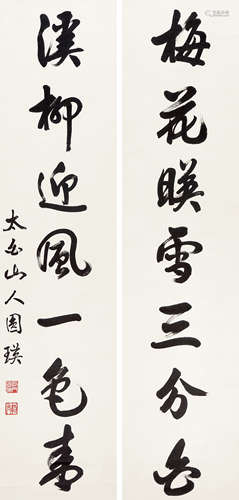 梅花映雪三分白
溪柳迎風一色青
太白山人圓瑛